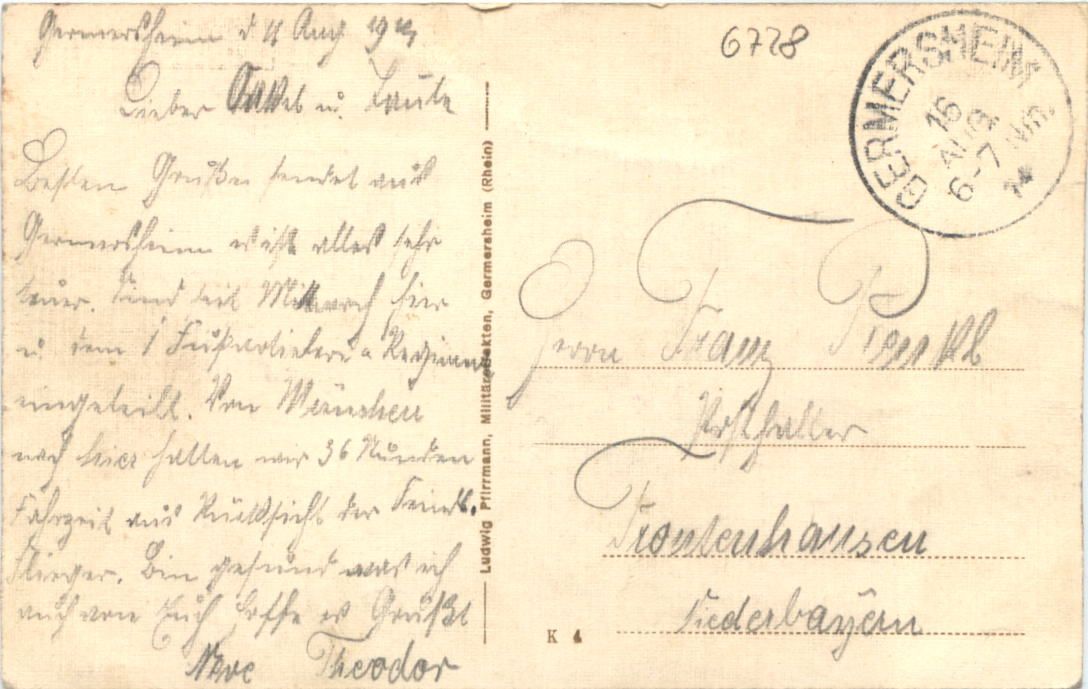 Germersheim d. Aug 19
Lieber Onkel u. Tante
Besten Grüße sendet aus
Germersheim es ist alles sehr
teuer. Sind seit Mittwoch hier
u. dem 1 Fußartielerie Regiment
eingeteilt. Von München
nach hier hatten wir 36 Stunden
Fahrzeit aus Rücksicht der Feindl.
Flieger. Bin gesund was ich
auch von Euch hoffe es Grüßt
Theodor
Ludwig Pfirrmann, Militäreffekten, Germersheim (Rhein)
K 4
6728
GERMERSHEIM
16
AUG
6-7 Nm.
Herrn Franz
Posthalter
Frontenhausen
Niederbayern